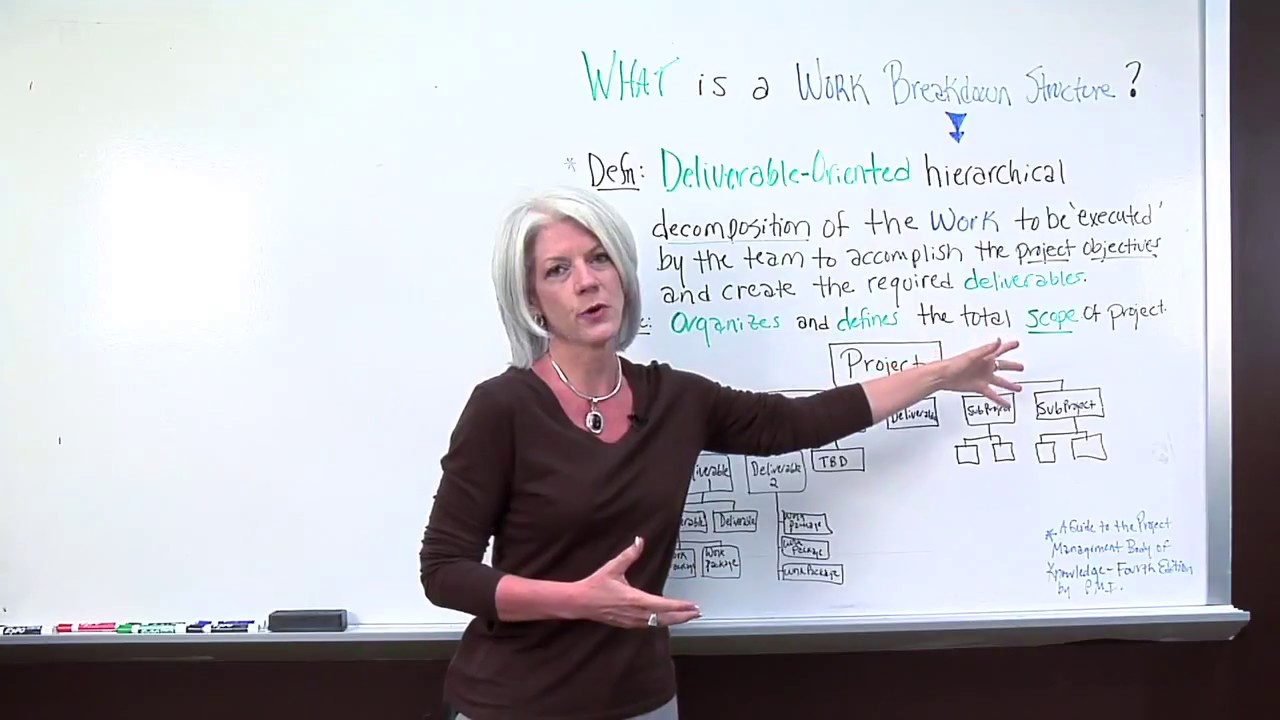 WHAT is a WORK Breakdown Structure?
* Defn: Deliverable-Oriented hierarchical
decomposition of the WORK to be 'executed'
by the team to accomplish the project objectives
and create the required deliverables.
Organizes and defines the total scope of project.
Project
Deliverable SubProject SubProject
Deliverable 2 TBD
1
Deliverable
Work Package
Work Package
Work Package
Work Package
* A Guide to the Project
Management Body of
Knowledge - Fourth Edition
by P.M.I.